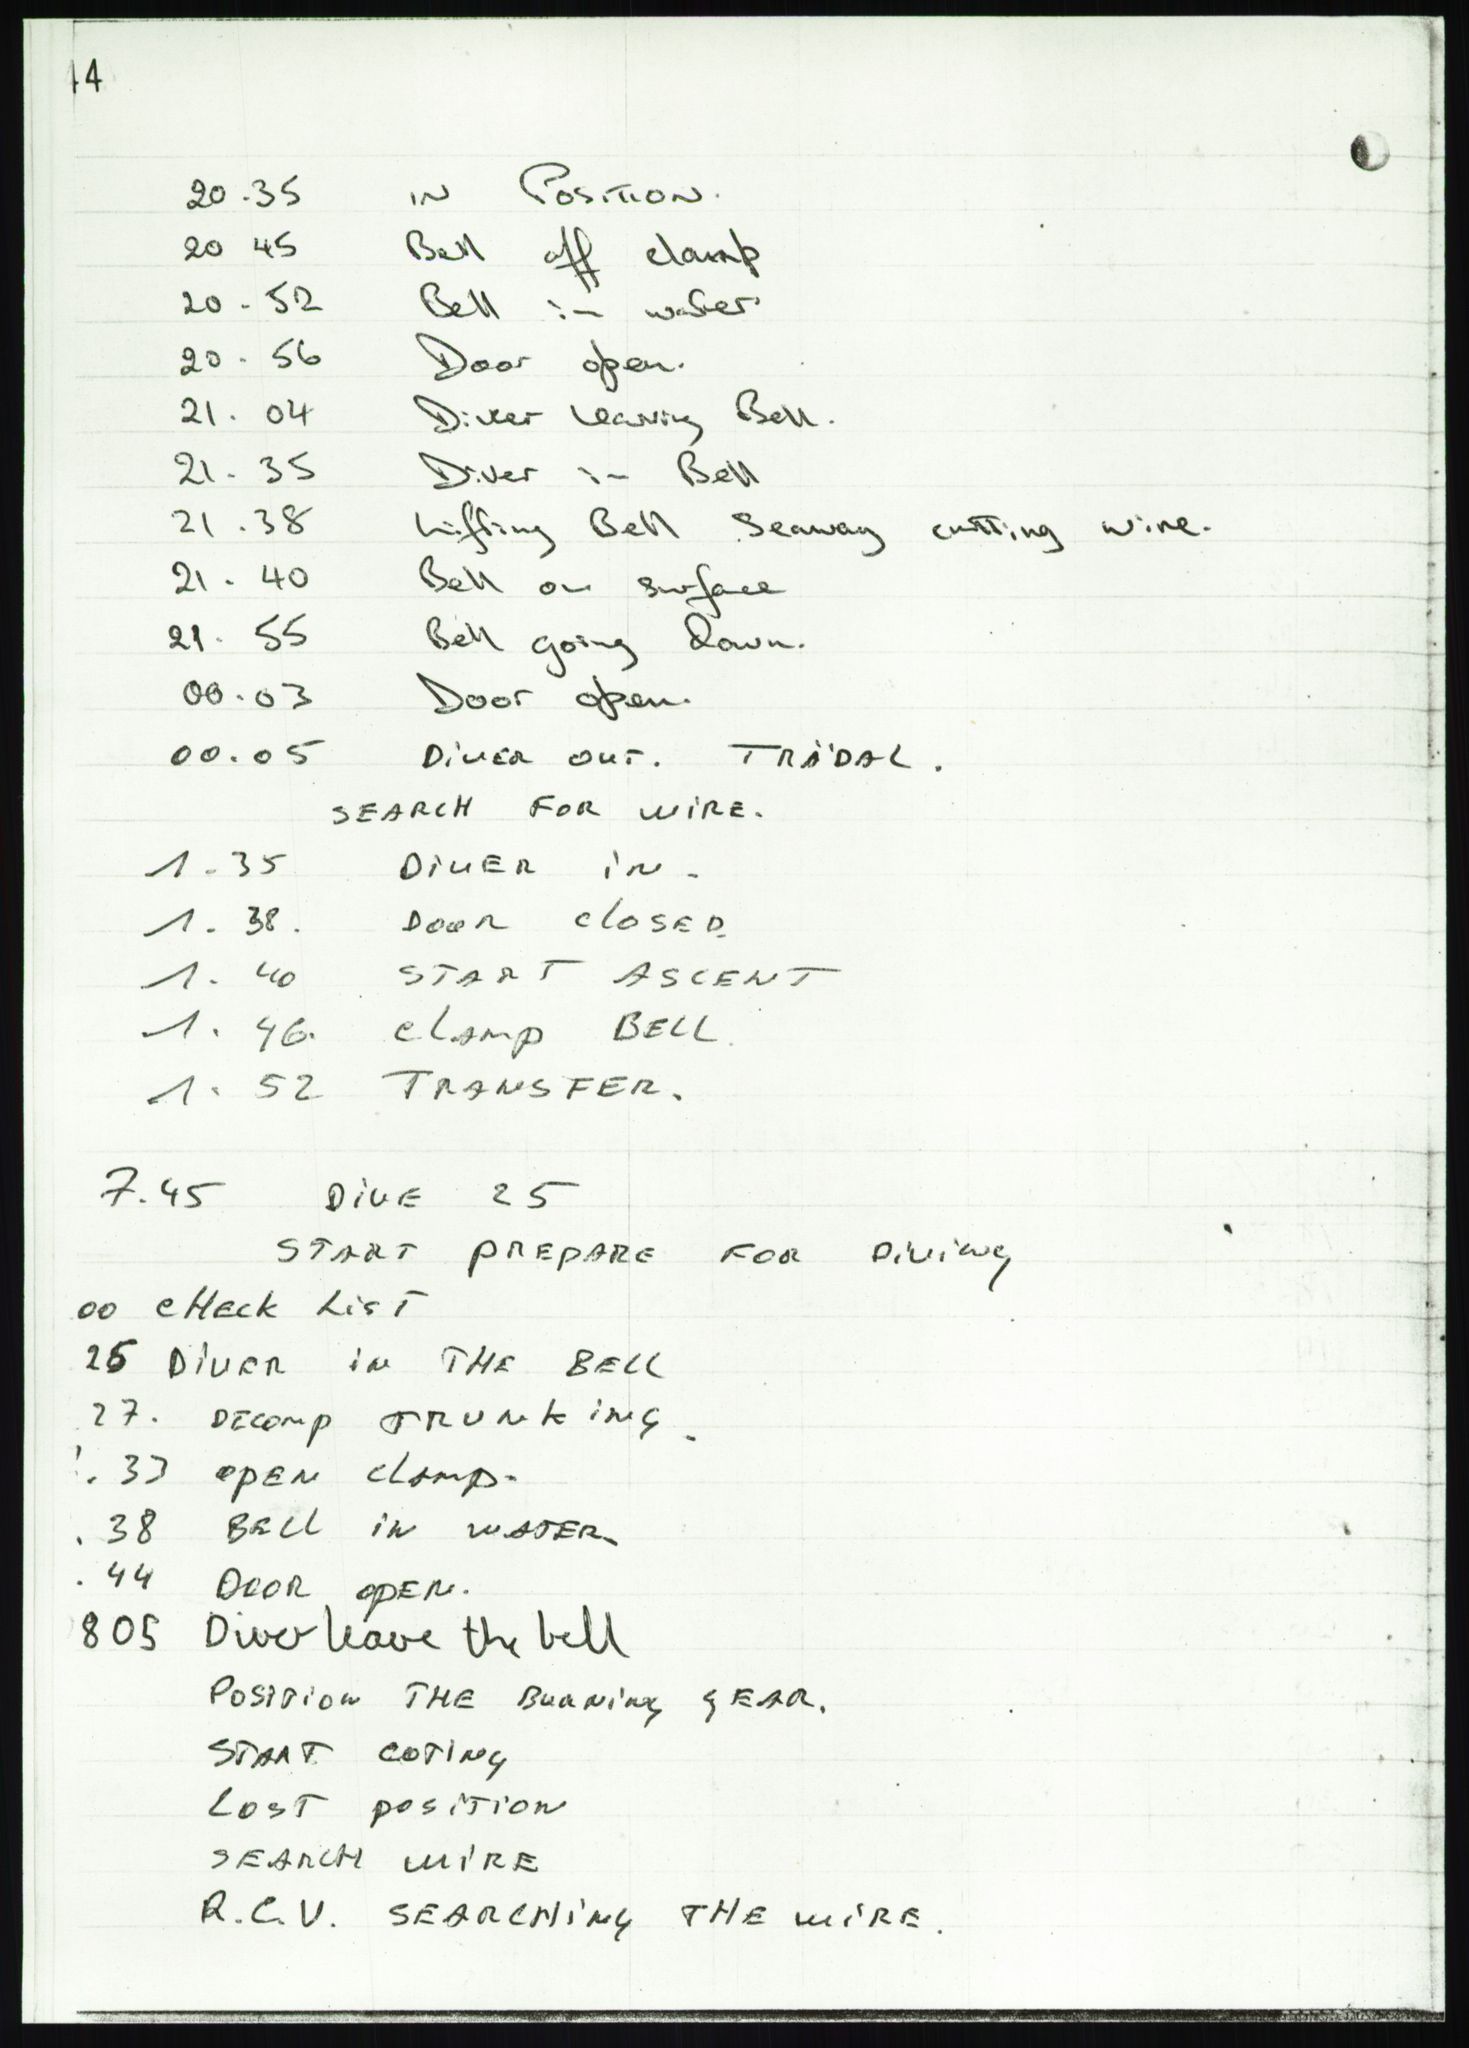 14
20.35 in Position.
20 45 Bell off clamp
20.52 Bell in water
20.56 Door open.
21.04 Diver leaving Bell.
21.35 Diver in Bell
21.38 Lifting Bell Seaway cutting wire.
21.40 Bell on surface
21.55 Bell going down.
00.03 Door open.
00.05 DIVER OUT. TRÄDAL.
SEARCH FOR WIRE.
1.35 DIVER IN.
1.38. DOOR CLOSED.
1.40 START ASCENT
1.46. CLAMP BELL.
1.52 TRANSFER.
7.45 DIVE 25
START PREPARE FOR DIVING
00 CHECK LIST
25 DIVER IN THE BELL
27. DECOMP TRUNKING.
.33 OPEN CLAMP.
.38 BELL IN WATER.
.44 DOOR OPEN.
805 Diver leave the bell
POSITION THE BURNING GEAR.
START COTING
LOST POSITION
SEARCH WIRE
R.C.V. SEARCHING THE WIRE.